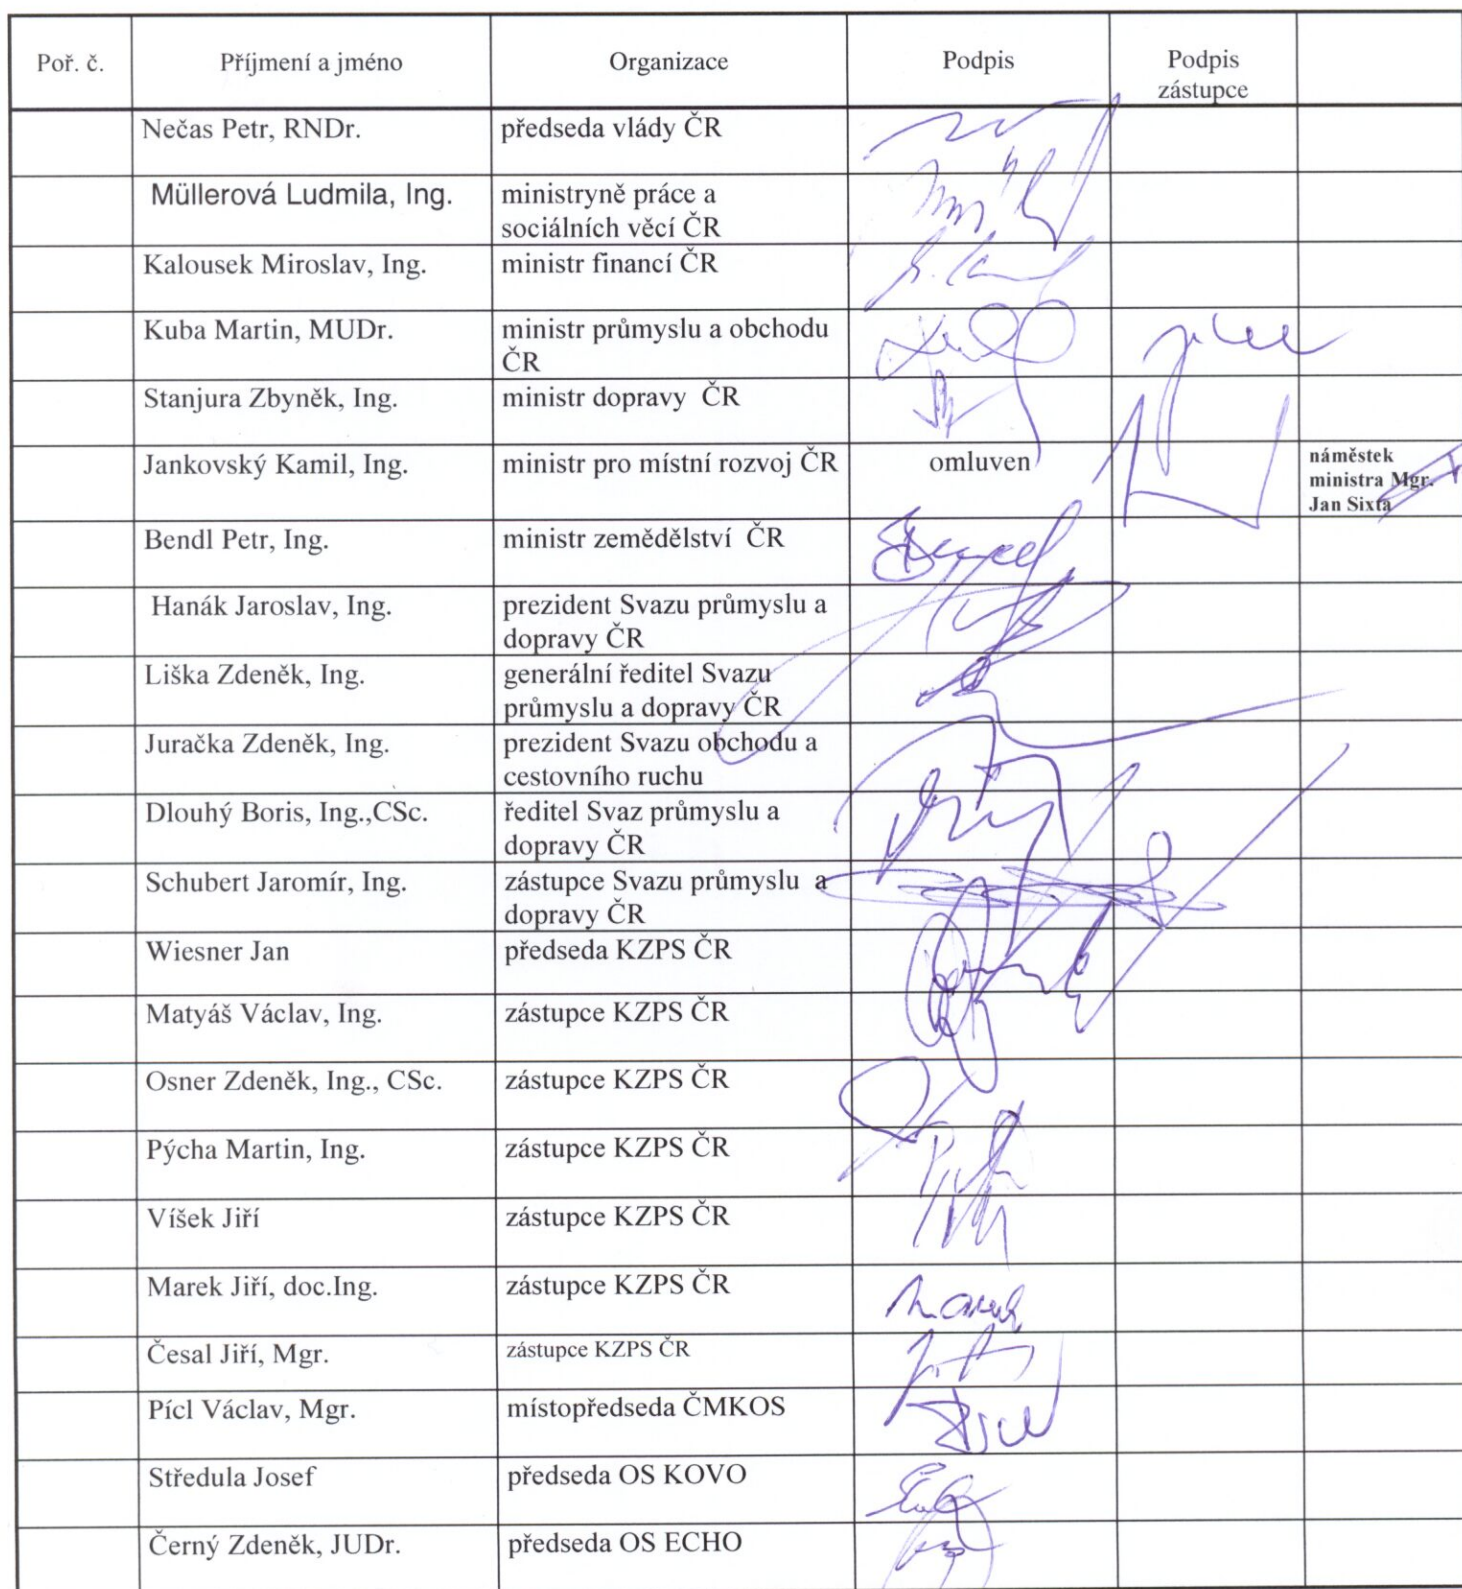 Poř. č. Příjmení a jméno Organizace Podpis Podpis
zástupce
Nečas Petr, RNDr. předseda vlády ČR
Müllerová Ludmila, Ing. ministryně práce a
sociálních věcí ČR
Kalousek Miroslav, Ing. ministr financí ČR
Kuba Martin, MUDr. ministr průmyslu a obchodu
ČR
Stanjura Zbyněk, Ing. ministr dopravy ČR
Jankovský Kamil, Ing. ministr pro místní rozvoj ČR omluven náměstek
ministra Mgr.
Jan Sixta
Bendl Petr, Ing. ministr zemědělství ČR
Hanák Jaroslav, Ing. prezident Svazu průmyslu a
dopravy ČR
Liška Zdeněk, Ing. generální ředitel Svazu
průmyslu a dopravy ČR
Juračka Zdeněk, Ing. prezident Svazu obchodu a
cestovního ruchu
Dlouhý Boris, Ing.,CSc. ředitel Svaz průmyslu a
dopravy ČR
Schubert Jaromír, Ing. zástupce Svazu průmyslu a
dopravy ČR
Wiesner Jan předseda KZPS ČR
Matyáš Václav, Ing. zástupce KZPS ČR
Osner Zdeněk, Ing., CSc. zástupce KZPS ČR
Pýcha Martin, Ing. zástupce KZPS ČR
Víšek Jiří zástupce KZPS ČR
Marek Jiří, doc.Ing. zástupce KZPS ČR
Česal Jiří, Mgr. zástupce KZPS ČR
Pícl Václav, Mgr. místopředseda ČMKOS
Středula Josef předseda OS KOVO
Černý Zdeněk, JUDr. předseda OS ECHO